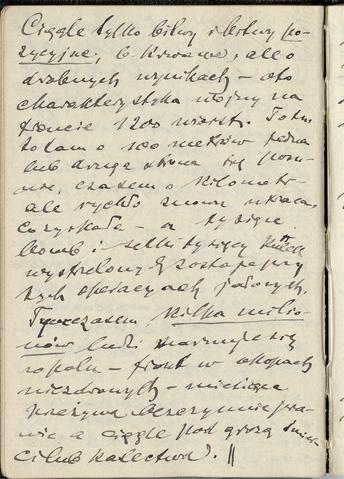 Ciągle tylko bitwy i bitwy po-
zycyjne, b. krwawe, ale o
drobnych wynikach – oto
charakterystyka wojny na
froncie 1200 wiorst. To tu
to tam o 100 metrów jedna
lub druga strona się posu-
nie, czasem o kilometr –
ale rychło znowu utraca,
co zyskała – a tysiące
bomb i setki tysięcy kul
wystrzelonych zostaje przy
tych operacjach jałowych.
Tymczasem kilka milio-
nów ludzi marnuje się
w polu – front w okopach
niezdrowych – miesiące
przeżywa bezczynnie pra-
wie, a ciągle pod grozą śmier-
ci lub kalectwa. ||